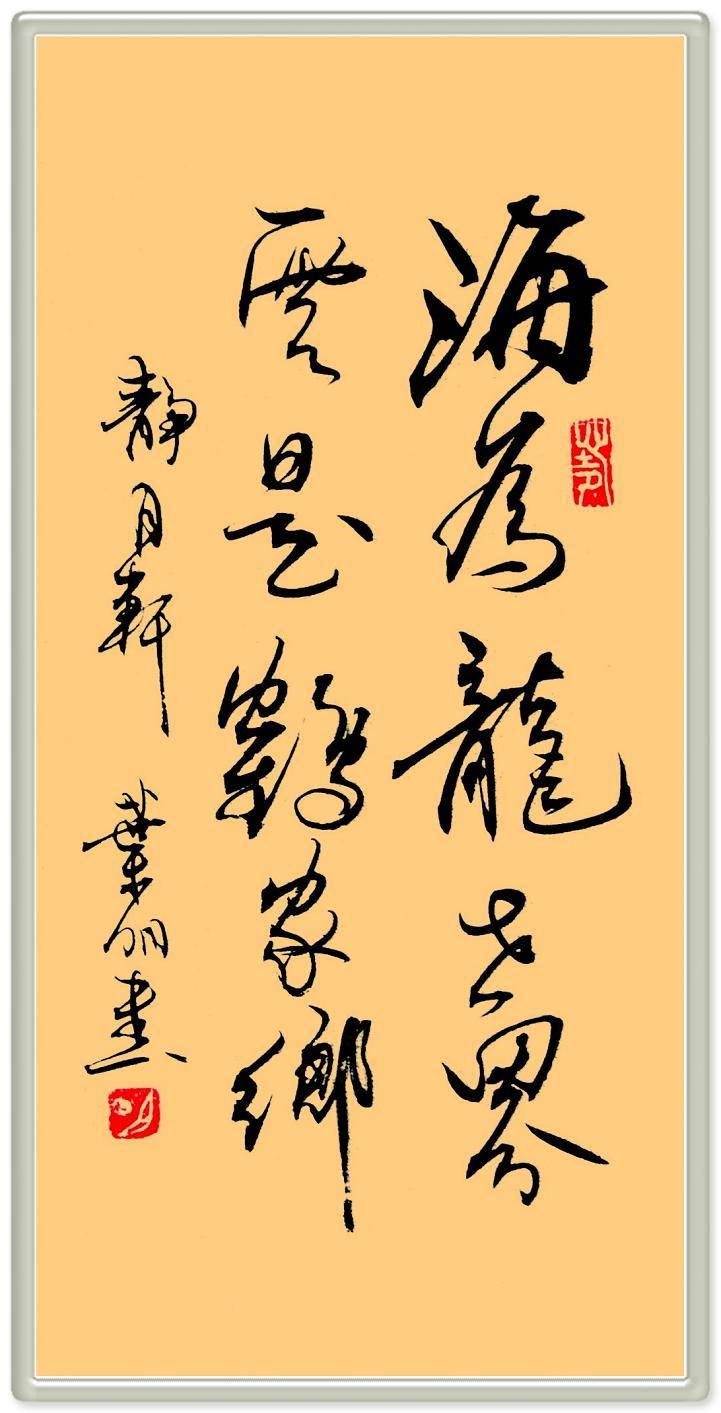 海為龍世界
雲是鶴家鄉
靜月軒 葉明書
明